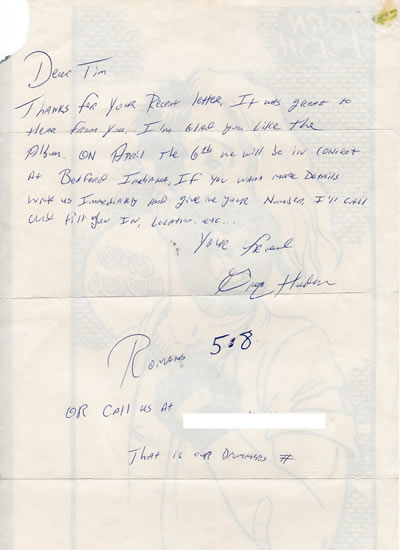 Dear Tim
Thanks for your recent letter, It was great to
Hear from you, I'm Glad you Like the
Album. ON April the 6th we will be in concert
At Bedford Indiana. If you want more Details
write us Immediately and give me your Number, I'll call
and fill you In, Location. etc...
Your friend
Hudson
Romans 5:8
OR Call us at
That is our Drummers #